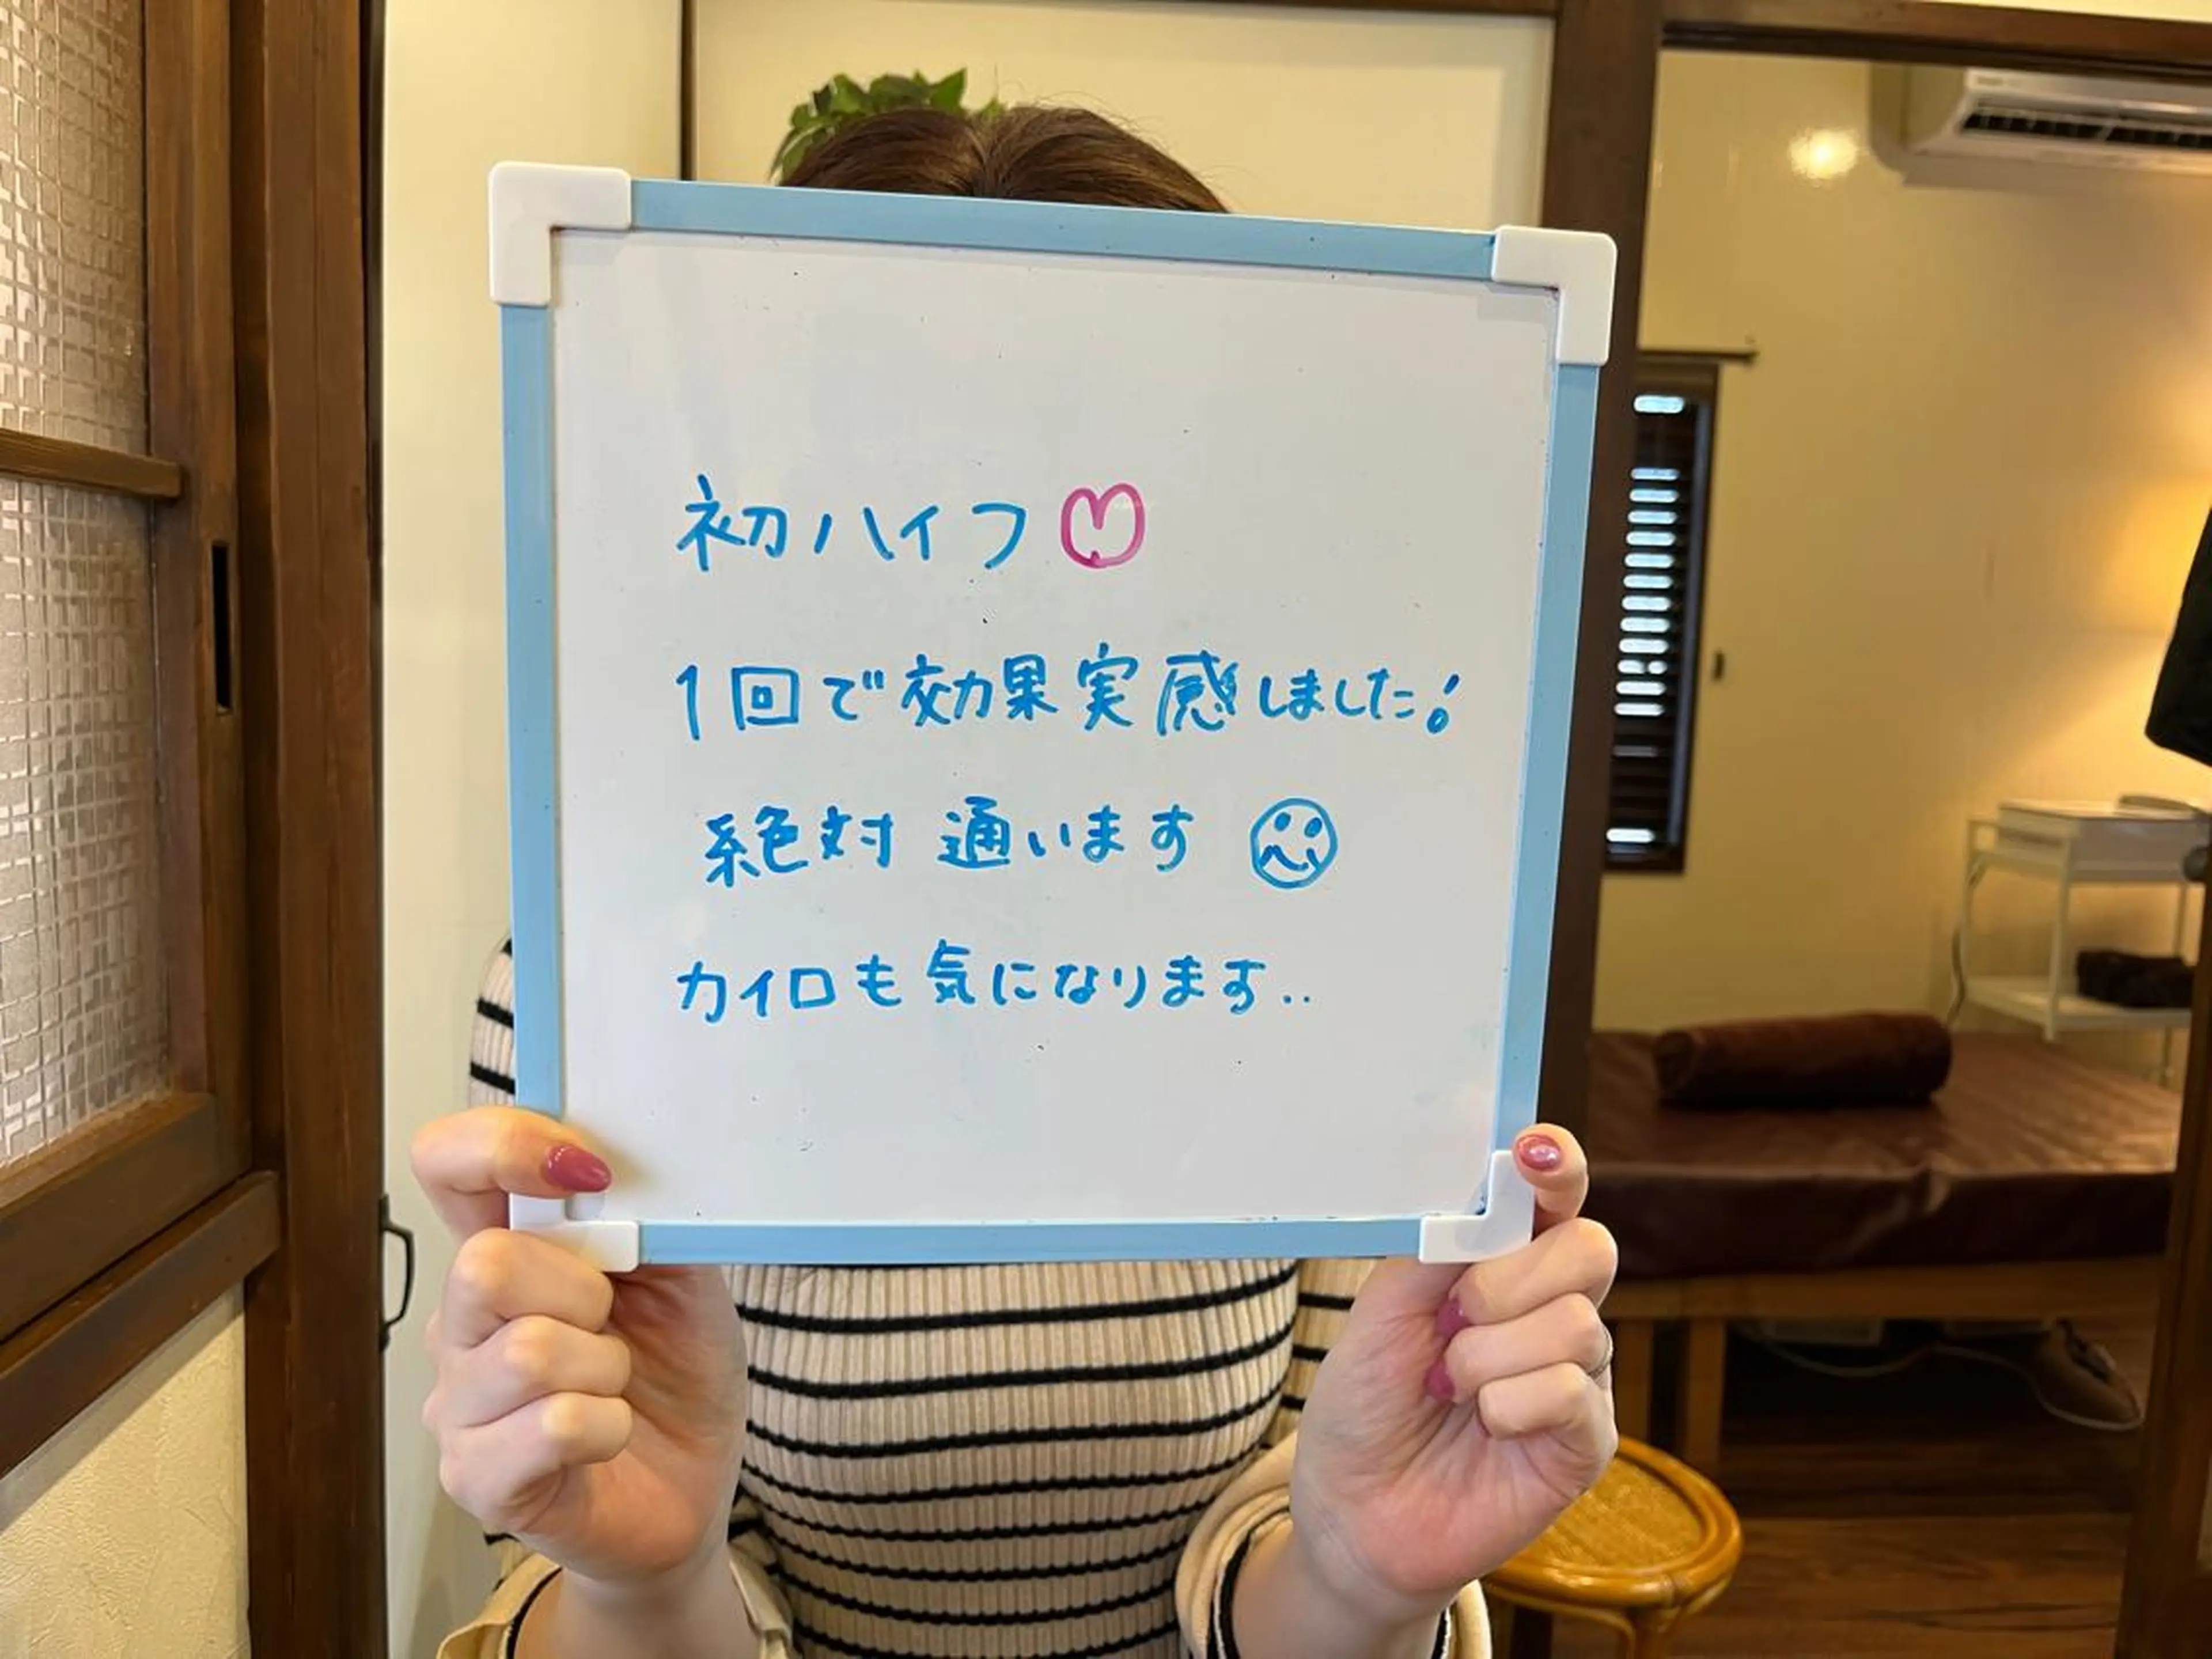 初ハイフ♡
1回で効果実感しました!
絶対 通います☺
カイロも気になります..